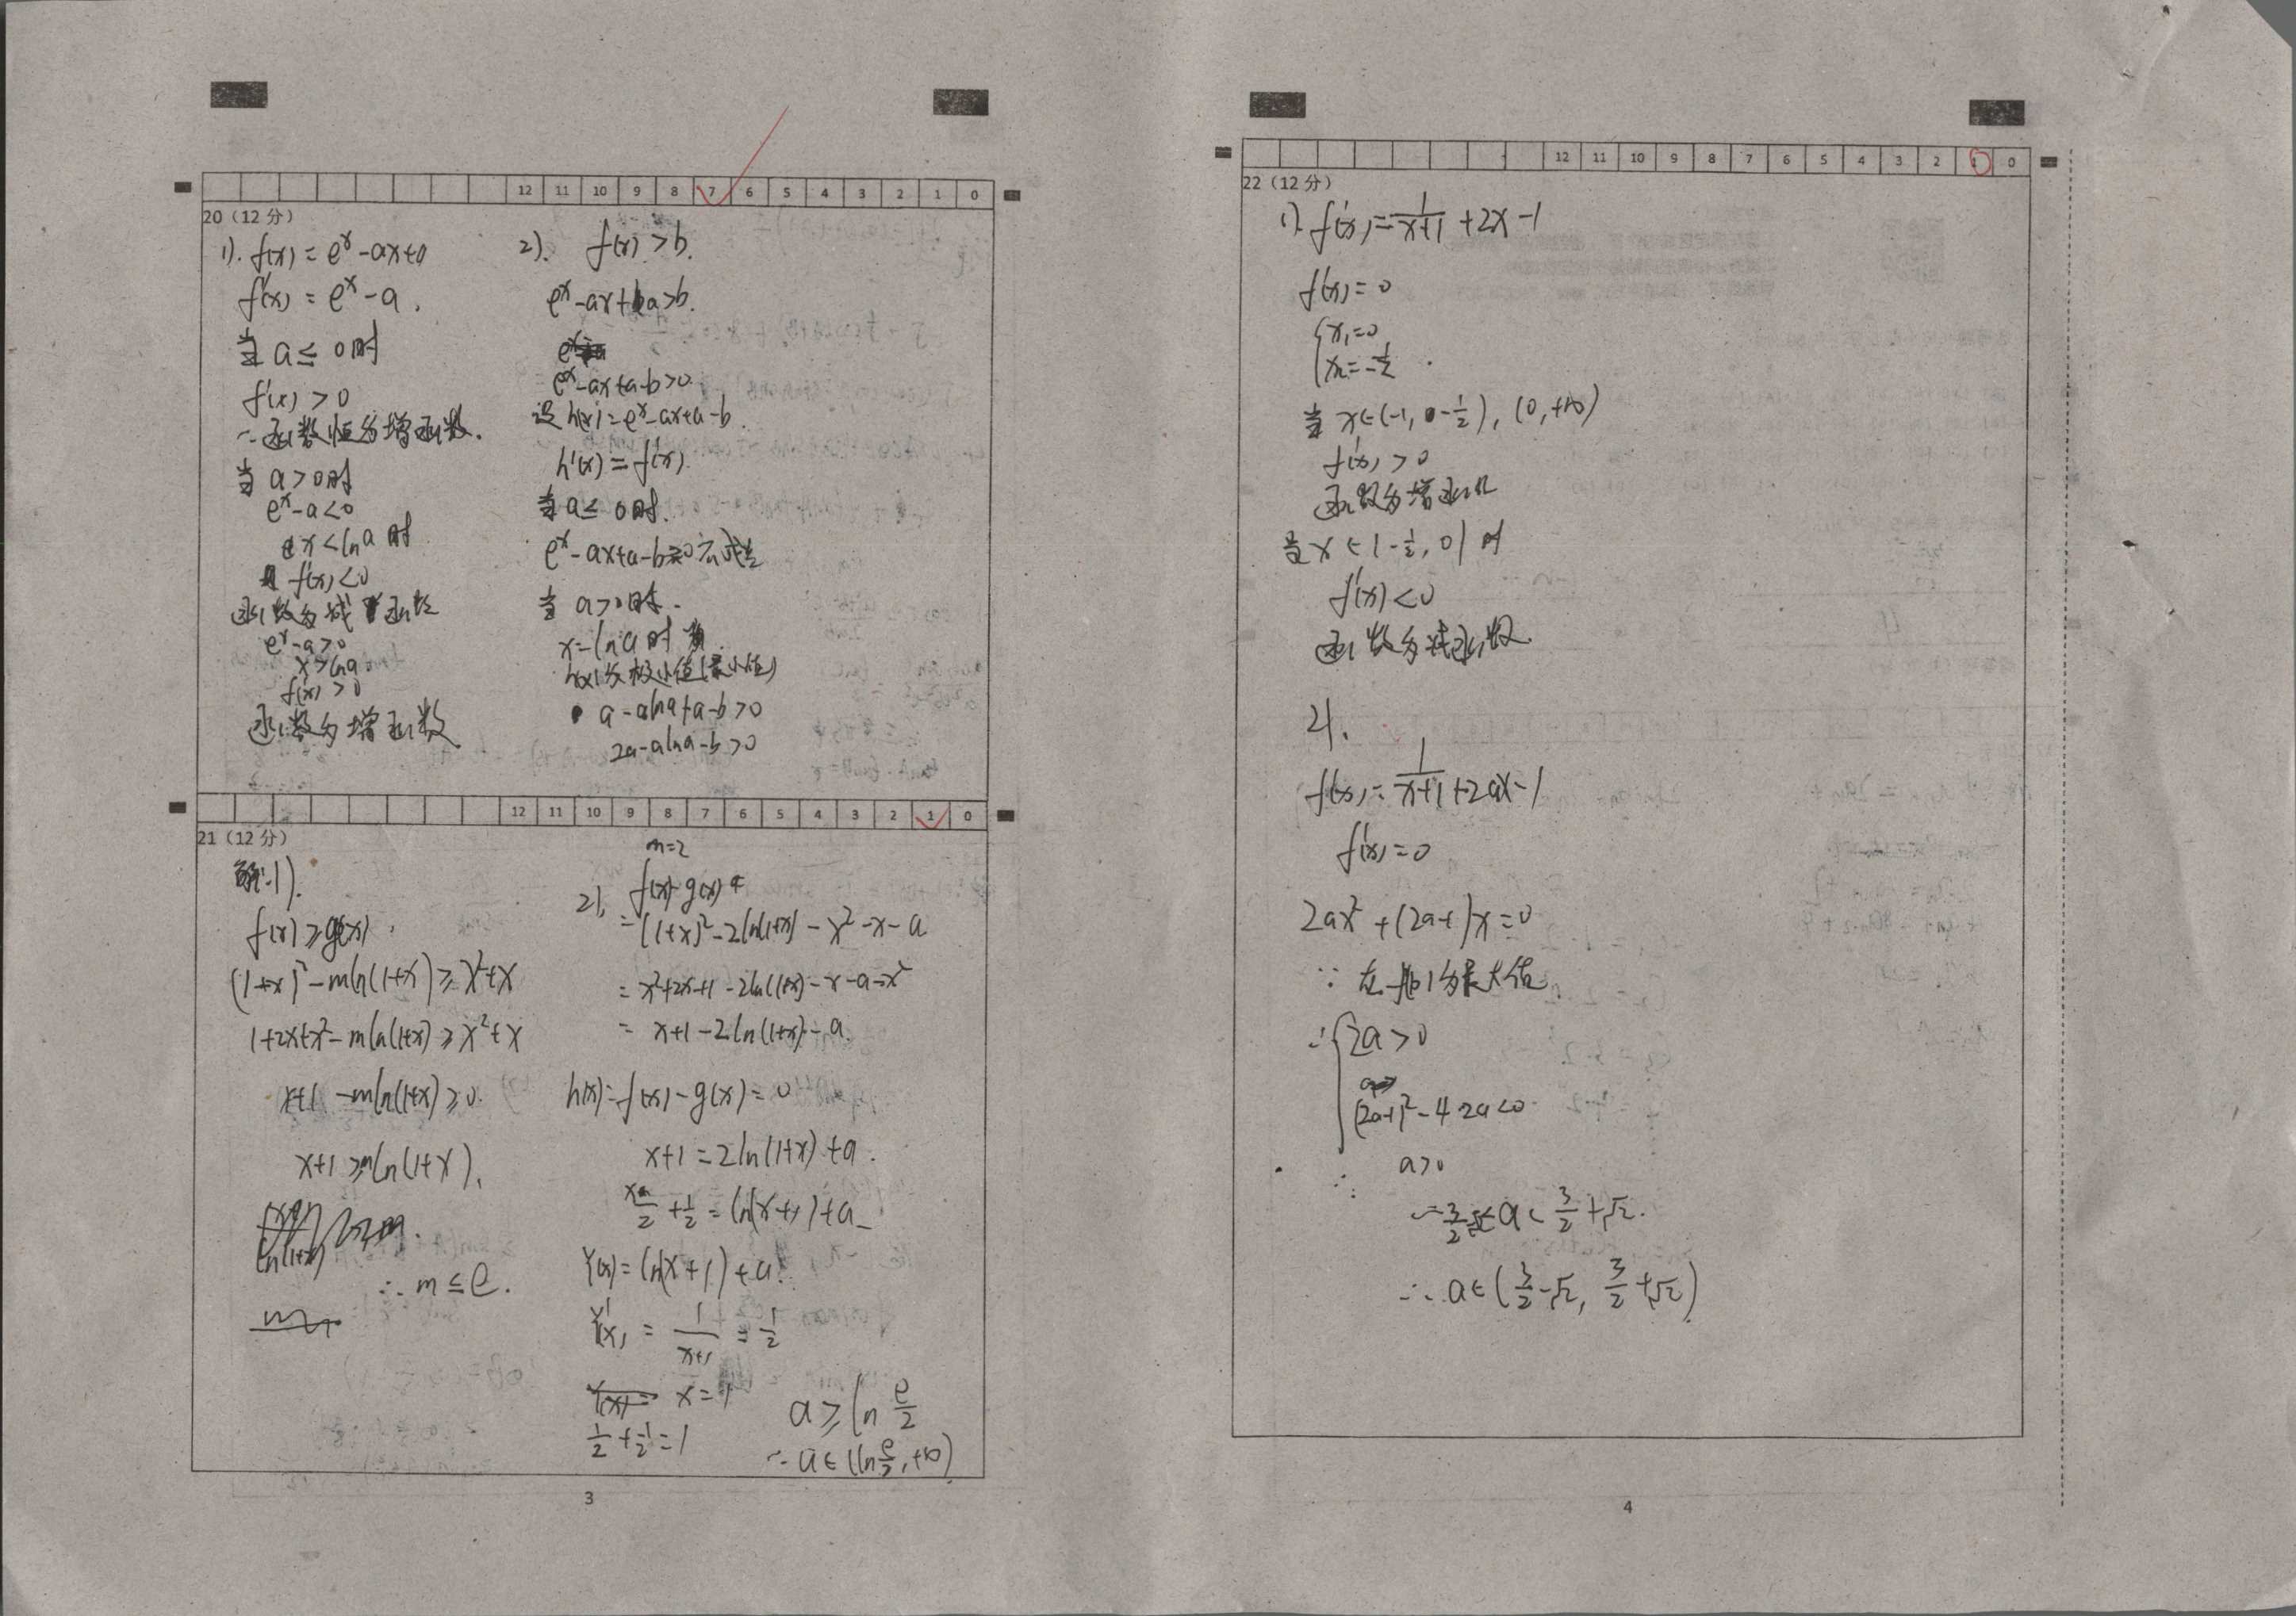 12 11 10 9 8 7 6 5 4 3 2 1 0
20（12 分）
1). f(x) = e^x - ax + a
f'(x) = e^x - a .
当 a ≤ 0 时
f'(x) > 0
∴ 函数恒为增函数.
当 a > 0 时
e^x - a < 0
x < ln a 时
f'(x) < 0
函数为减函数
e^x - a > 0
x > ln a
f'(x) > 0
函数为增函数
2). f(x) > b.
e^x - ax + a > b.
e^x - ax + a - b > 0
设 h(x) = e^x - ax + a - b.
h'(x) = f'(x).
当 a ≤ 0 时.
e^x - ax + a - b ≥ 0 不成立
当 a > 0 时.
x = ln a 时
h(x) 为极小值(最小值)
a - a ln a + a - b > 0
2a - a ln a - b > 0
12 11 10 9 8 7 6 5 4 3 2 1 0
21（12 分）
解:1).
f(x) ≥ g(x)
(1+x)² - m ln(1+x) ≥ x² + x
1 + 2x + x² - m ln(1+x) ≥ x² + x
x+1 - m ln(1+x) ≥ 0.
x+1 ≥ m ln(1+x).
∴ m ≤ e.
m=2
2). f(x) - g(x)
= (1+x)² - 2ln(1+x) - x² - x - a
= x² + 2x + 1 - 2ln(1+x) - x - a - x²
= x + 1 - 2ln(1+x) - a
h(x) = f(x) - g(x) = 0
x+1 = 2ln(1+x) + a.
x/2 + 1/2 = ln(x+1) + a
Y(x) = ln(x+1) + a
Y'(x) = 1/(x+1) = 1/2
x = 1
1/2 + 1/2 = 1
a ≥ ln e/2
∴ a ∈ (ln e/2, +∞)
3
12 11 10 9 8 7 6 5 4 3 2 1 0
22（12 分）
1). f'(x) = 1/(x+1) + 2x - 1
f'(x) = 0
{ x₁ = 0
x₂ = -1/2 .
当 x ∈ (-1, -1/2), (0, +∞)
f'(x) > 0
函数为增函数
当 x ∈ (-1/2, 0) 时
f'(x) < 0
函数为减函数
2).
f'(x) = 1/(x+1) + 2ax - 1
f'(x) = 0
2ax² + (2a-1)x = 0
∵ 为最大值
∴ { 2a > 0
(2a-1)² - 4·2a < 0
∴ a > 0
3/2 - √2 < a < 3/2 + √2.
∴ a ∈ (3/2 - √2, 3/2 + √2)
4